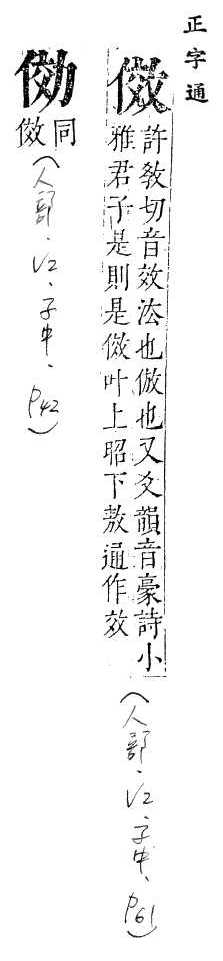 正字通
傚
許敎切音效㳒也倣也又爻韻音豪詩小
雅君子是則是傚叶上昭下敖通作效
(人部.V2.子中.P61)
俲
同
傚
(人部.V2.子中.P42)